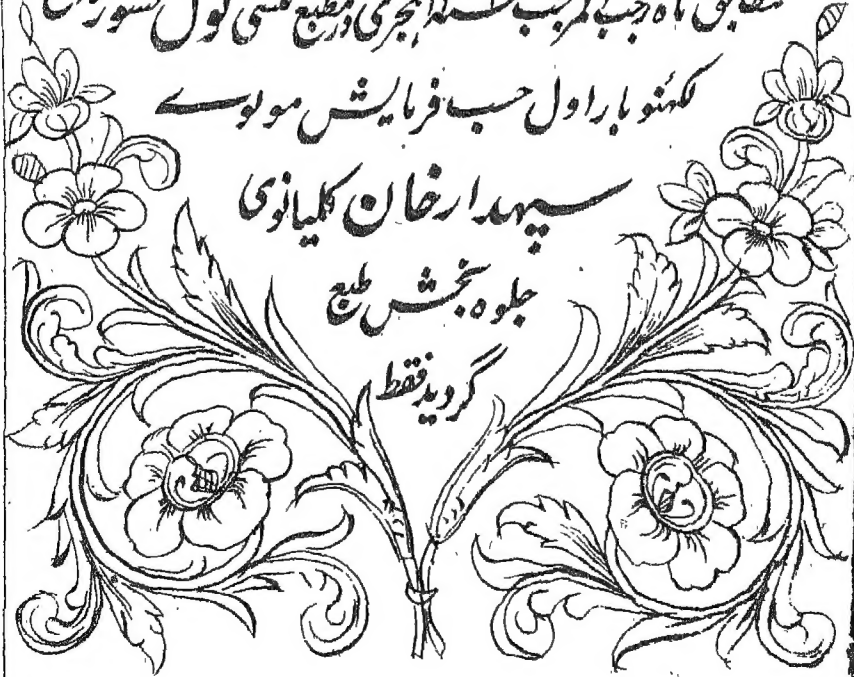 مطابق ماه رجب المرجب هجری در مطبع منشی نول کشور واقع
لکهنو بار اول حسب فرمایش مولوے
سپهدار خان کلیانوی
جلوه بخش طبع
گردید فقط